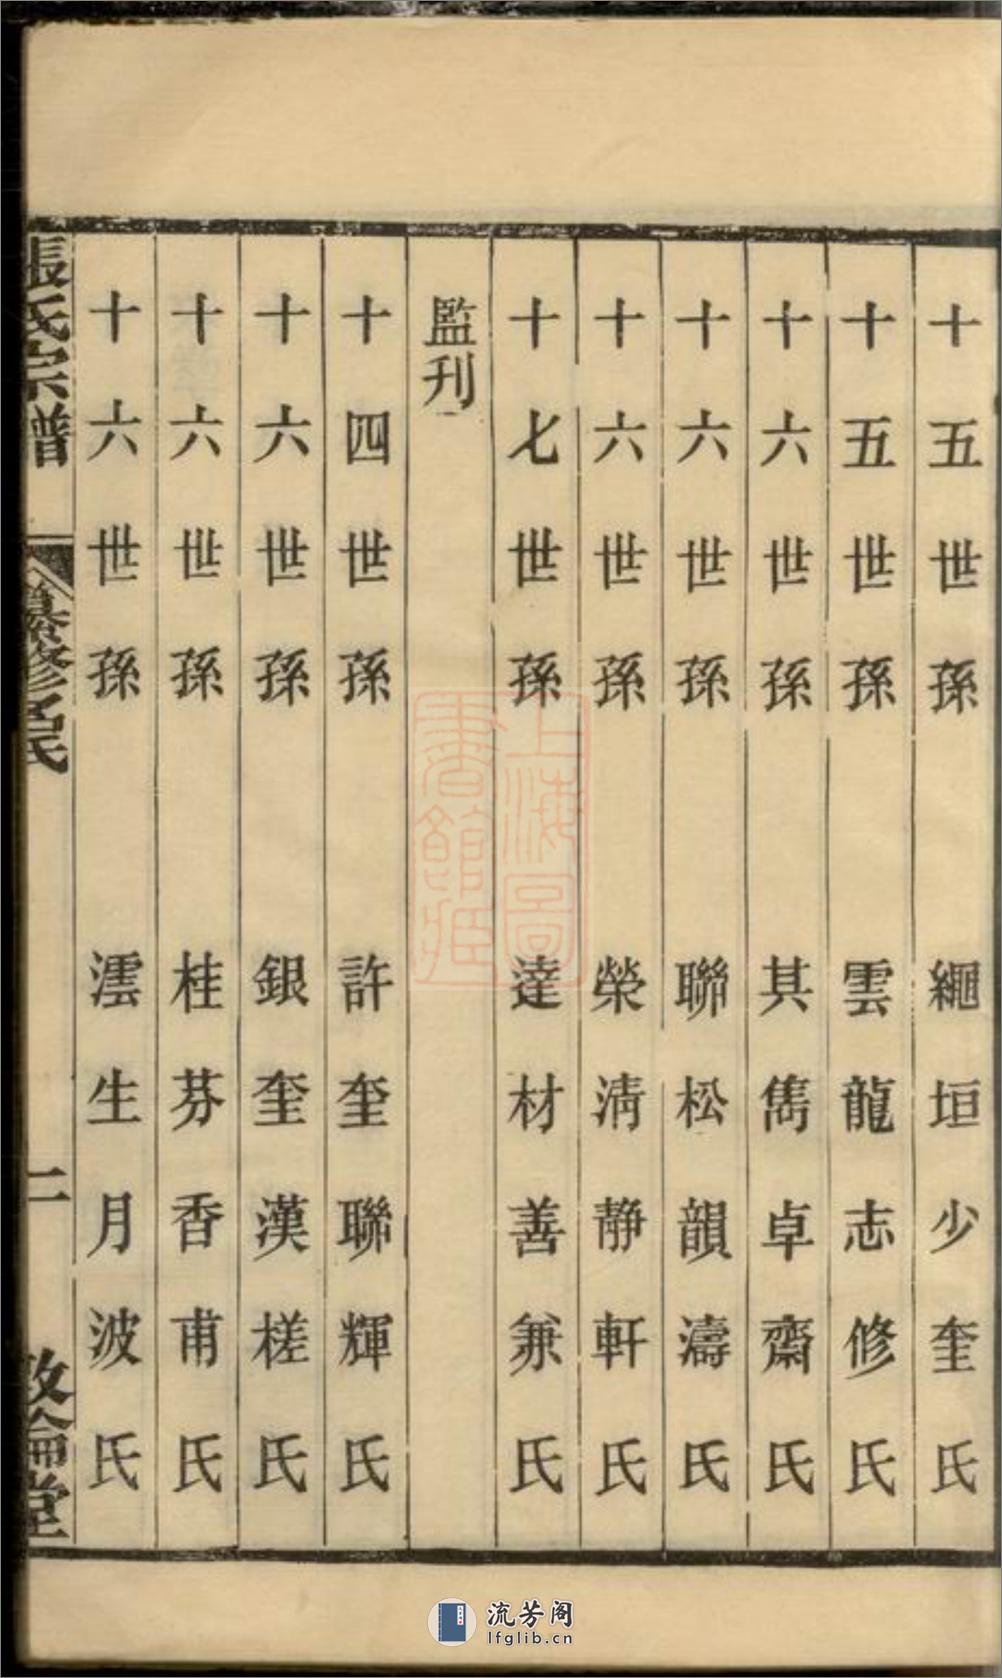 十五世孫 繩垣少奎氏
十五世孫 雲龍志修氏
十六世孫 其雋卓齋氏
十六世孫 聯松韻濤氏
十六世孫 榮清靜軒氏
十七世孫 達材善兼氏
監刊
十四世孫 許奎聯輝氏
十六世孫 銀奎漢槎氏
十六世孫 桂芬香甫氏
十六世孫 澐生月波氏
張氏宗譜 纂修名氏 二 敦倫堂
上海圖
書館藏
流芳阁
lfglib.cn